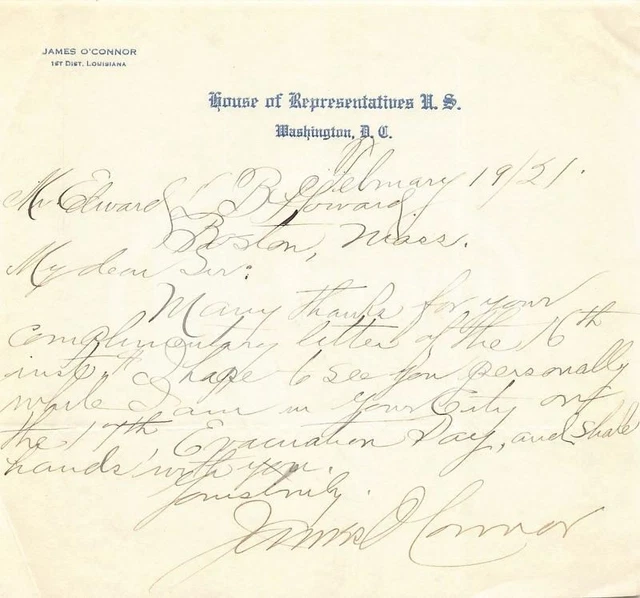 JAMES O'CONNOR
1ST DIST. LOUISIANA
House of Representatives U. S.
Washington, D. C.
February 19/21.
Mr. Edward B. Howard
Boston, Mass.
My dear Sir:
Many thanks for your
complimentary letter of the 16th
inst. I hope to see you personally
while I am in your City on
the 17th, Evacuation Day, and shake
hands with you.
Yours truly.
James O'Connor